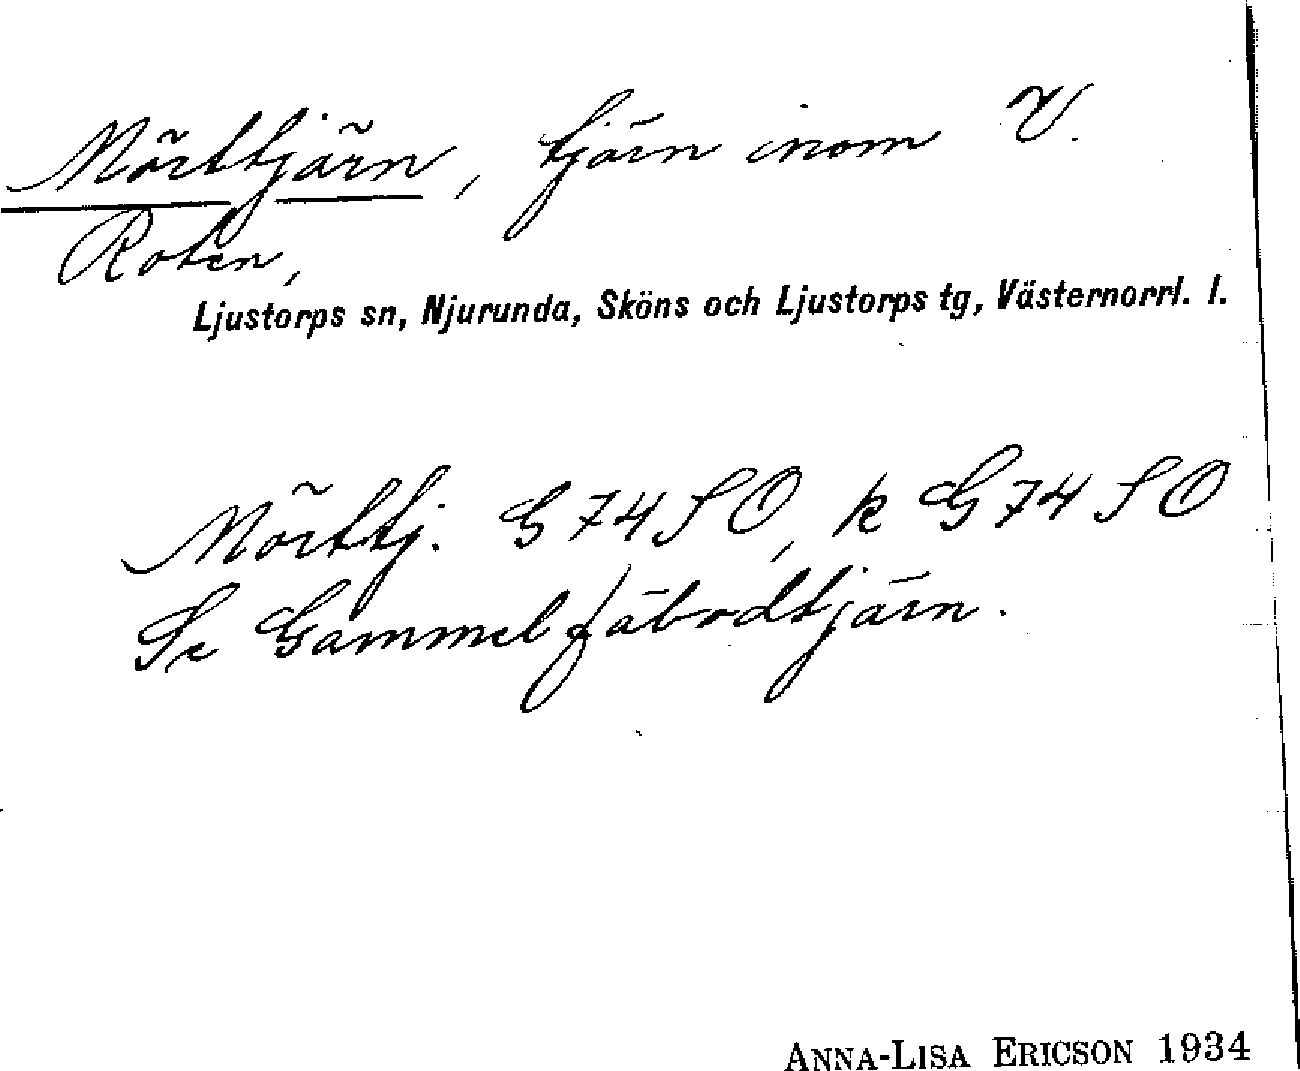 Mörttjärn, tjärn inom V.
Roten,
Ljustorps sn, Njurunda, Sköns och Ljustorps tg, Västernorrl. l.
Mörttj. G74SO, k G74SO
Se Gammelfäbodtjärn.
ANNA-LISA ERICSON 1934